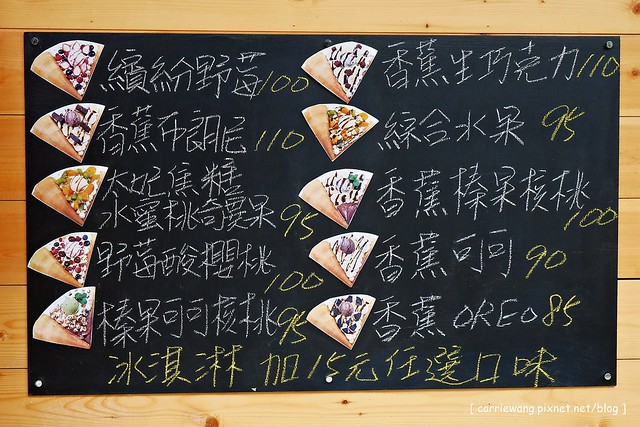 繽紛野莓100
香蕉布朗尼110
太妃焦糖
水蜜桃奇異果95
野莓酸櫻桃100
榛果可可核桃95
香蕉生巧克力110
綜合水果 95
香蕉榛果核桃100
香蕉可可 90
香蕉 OREO 85
冰淇淋 加15元任選口味
[ carriewang.pixnet.net/blog ]